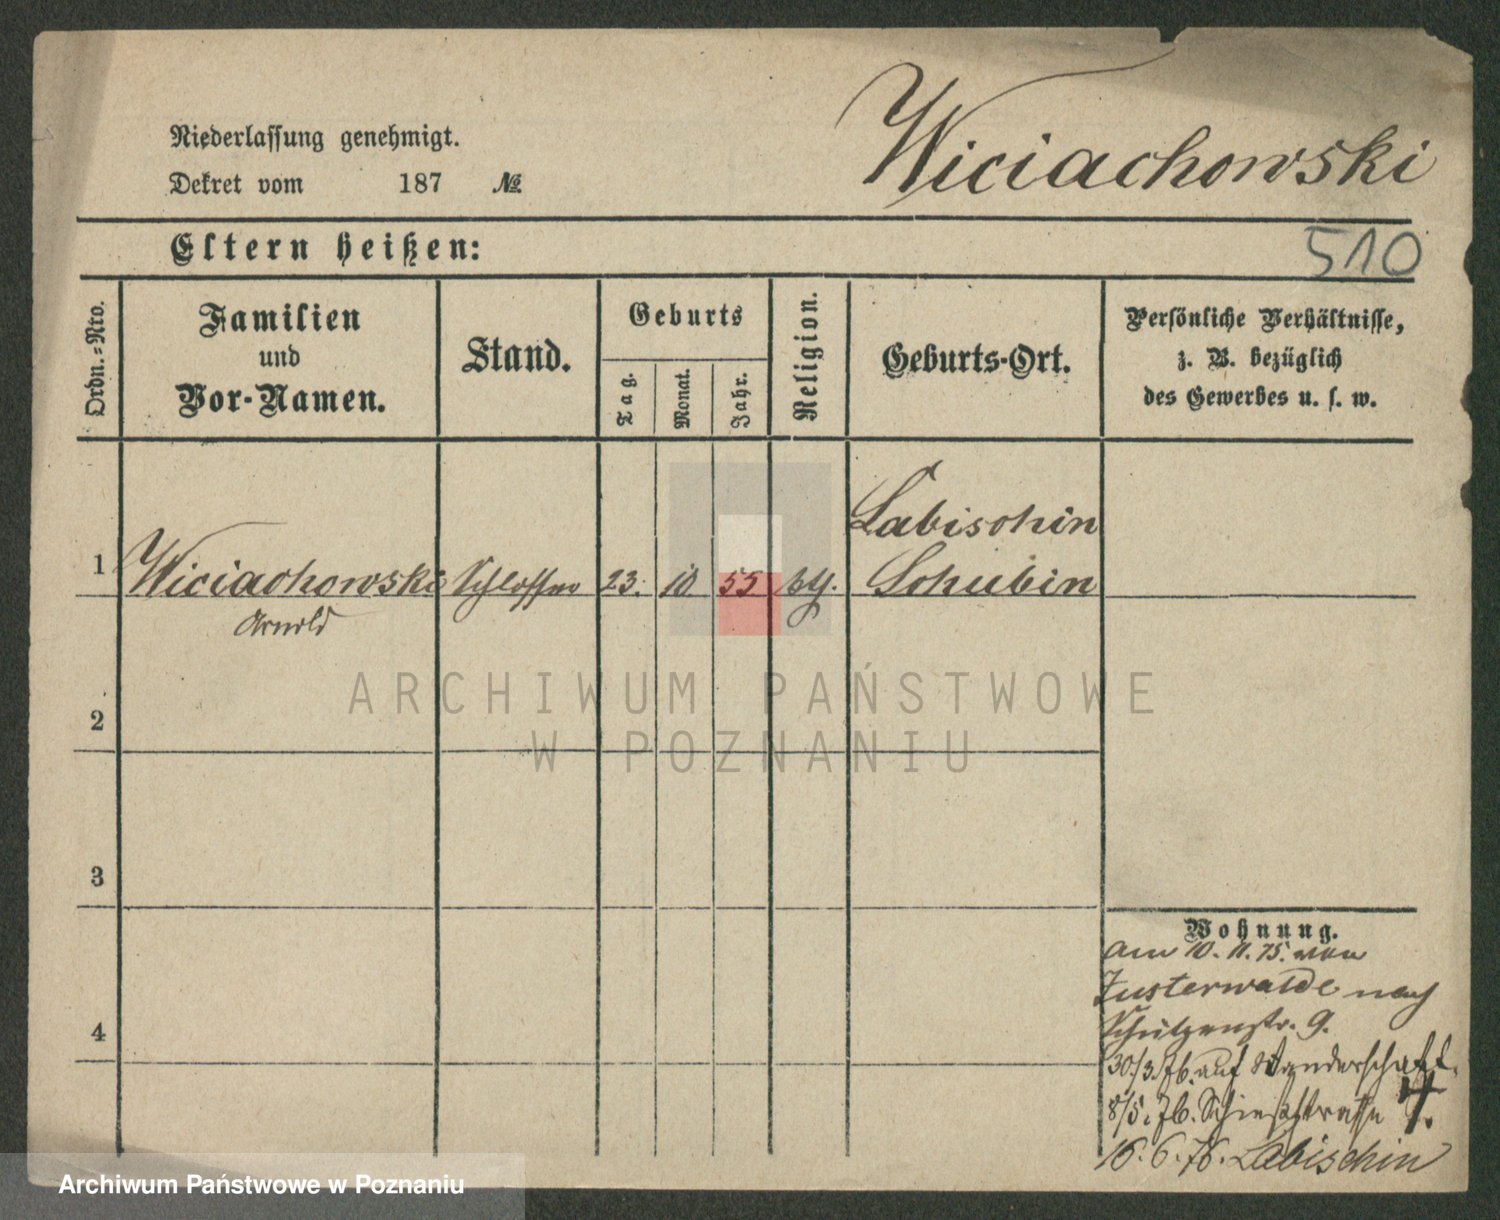 Niederlassung genehmigt.
Dekret vom 187 №
Wiciachowski
Eltern heißen:
510
Ordn.-Nro.
Familien
und
Vor-Namen.
Stand.
Geburts
Tag.
Monat.
Jahr.
Religion.
Geburts-Ort.
Persönliche Verhältnisse,
z. B. bezüglich
des Gewerbes u. s. w.
Labischin
1 Wiciachowski Schlosser 23. 10 55 Schubin
Arnold
ARCHIWUM PAŃSTWOWE
W POZNANIU
2
3
4
Wohnung.
am 10. 11. 75. von
Zusterwalde nach
Schützenstr. 9.
30/3.76. auf Wanderschaft.
8/5.76. Schießstrasse 4.
16. 6. 76. Labischin
Archiwum Państwowe w Poznaniu